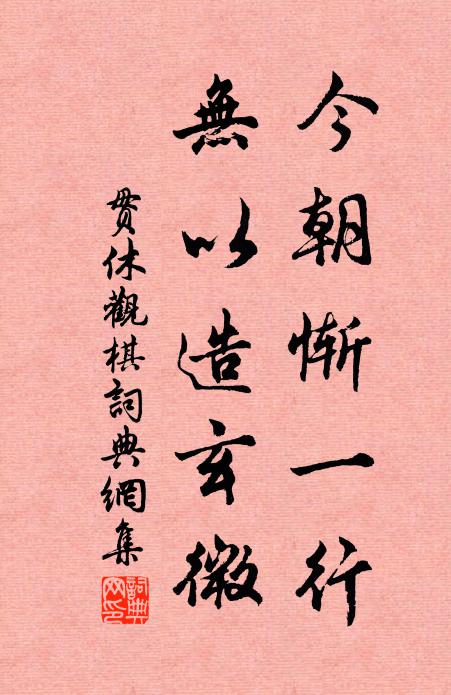 今朝慚一行
無以造玄微
貫休觀棋詞典網集
詞典网印